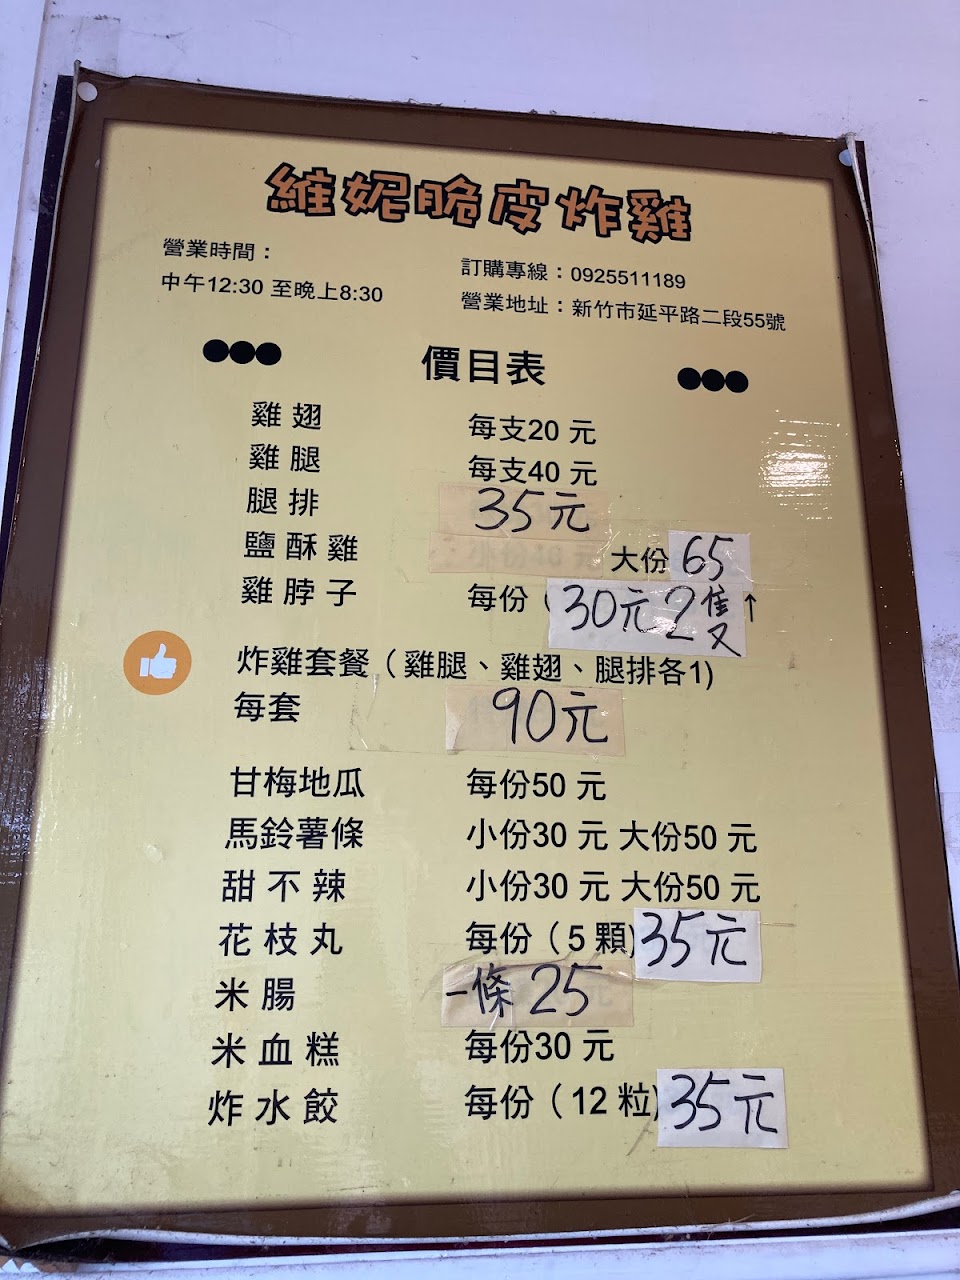 維妮脆皮炸雞
營業時間：
中午12:30 至晚上8:30
訂購專線：0925511189
營業地址：新竹市延平路二段55號
價目表
雞翅 每支20 元
雞腿 每支40 元
腿排 35元
鹽酥雞 小份40 元 大份 65
雞脖子 每份 ( 30元2隻 ↑
炸雞套餐（雞腿、雞翅、腿排各1)
每套 90元
甘梅地瓜 每份50 元
馬鈴薯條 小份30 元 大份50 元
甜不辣 小份30 元 大份50 元
花枝丸 每份（5 顆) 35元
米腸 一條 25
米血糕 每份30 元
炸水餃 每份（12 粒) 35元